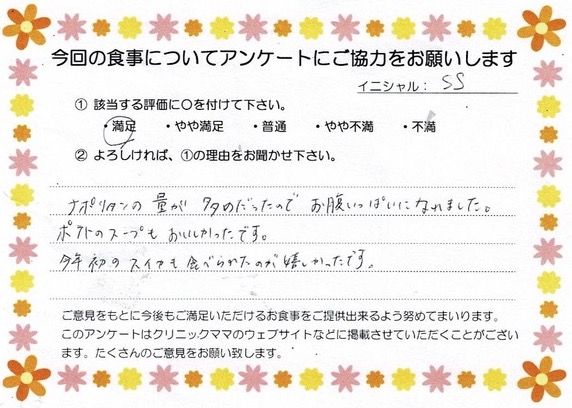 今回の食事についてアンケートにご協力をお願いします
イニシャル： SS
① 該当する評価に〇を付けて下さい。
・満足 ・やや満足 ・普通 ・やや不満 ・不満
② よろしければ、①の理由をお聞かせ下さい。
ナポリタンの量が多めだったのでお腹いっぱいになれました。
ポテトのスープもおいしかったです。
今年初のスイカも食べられたのが嬉しかったです。
ご意見をもとに今後もご満足いただけるお食事をご提供出来るよう努めてまいります。
このアンケートはクリニックママのウェブサイトなどに掲載させていただくことがござい
ます。たくさんのご意見をお願い致します。